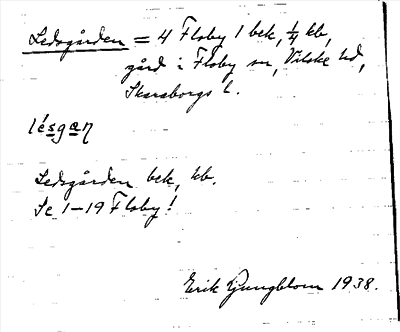 Ledsgården = 4 Floby 1 bek, 1/4 kb,
gård i Floby sn, Vilske hd,
Skaraborgs l.
lésgan
Ledsgården bek, kb.
Se 1–19 Floby!
Erik Ljungblom 1938.